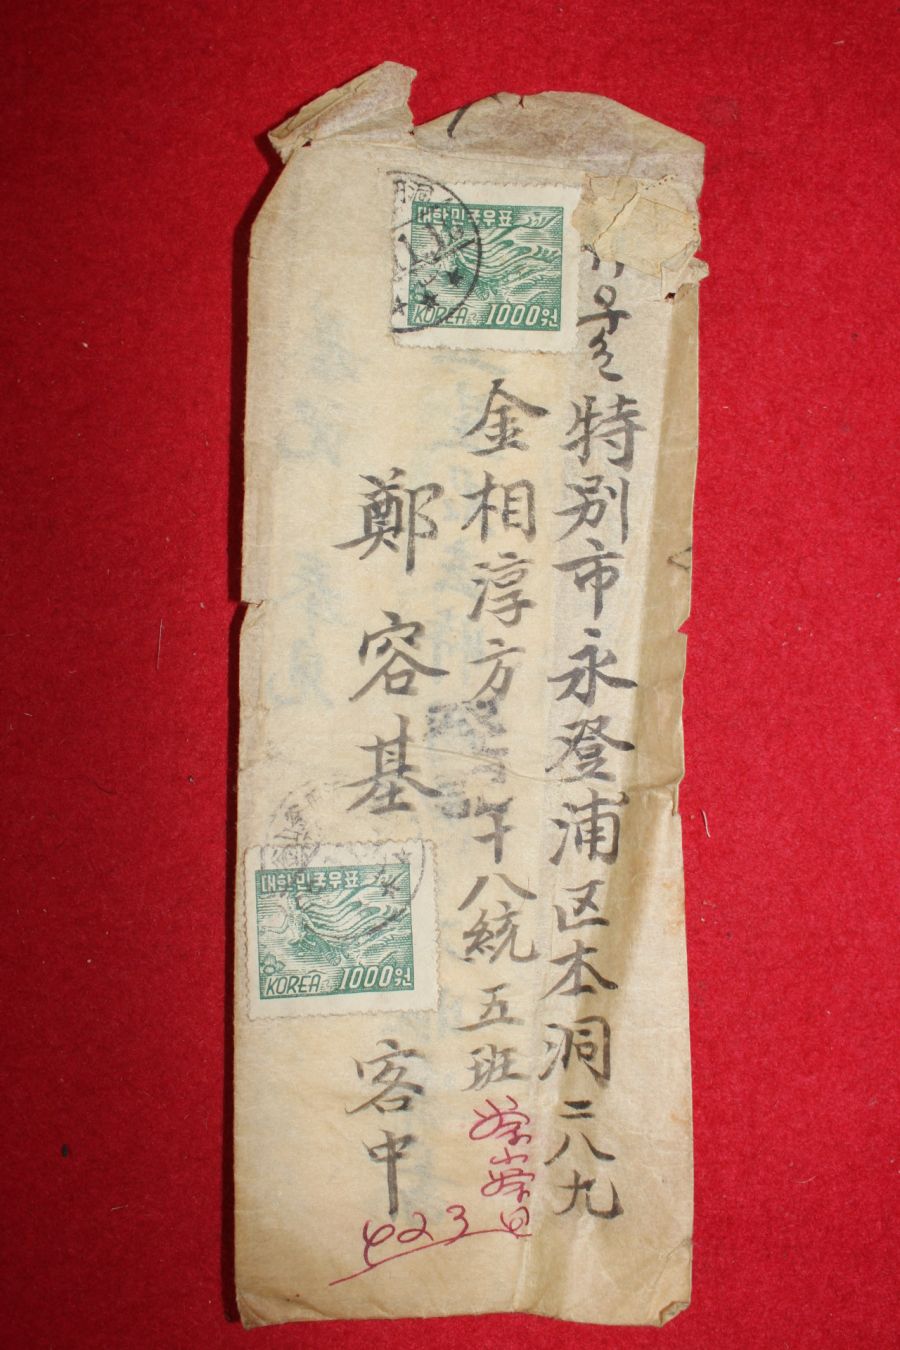 서울特別市永登浦区本洞二八九
金相淳方 十八統五班
鄭容基 客中
大한민국우표
KOREA 1000원
대한민국우표
KOREA 1000원
423